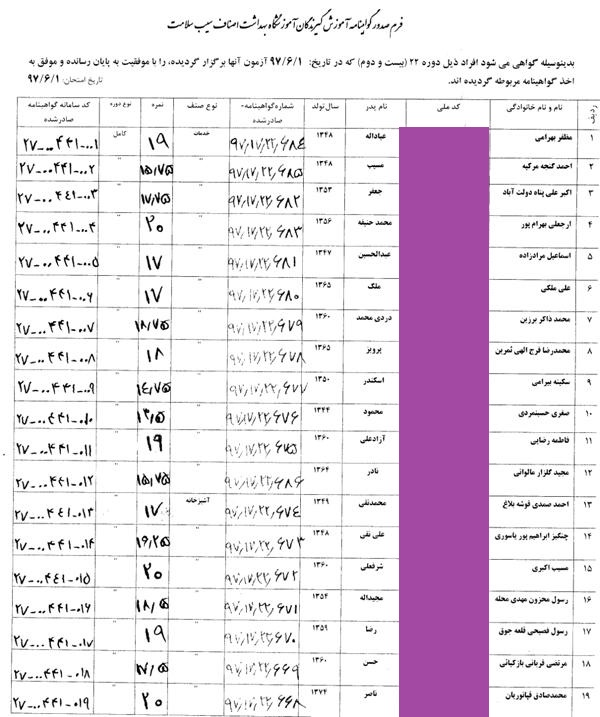 فرم صدور گواهینامه آموزش گیرندگان آموزشگاه بهداشت اصناف سیب سلامت
بدینوسیله گواهی می شود افراد ذیل دوره ۲۲ (بیست و دوم) که در تاریخ: ۹۷/۶/۱ آزمون آنها برگزار گردیده، را با موفقیت به پایان رسانده و موفق به
اخذ گواهینامه مربوطه گردیده اند. تاریخ امتحان: ۹۷/۶/۱
ردیف نام و نام خانوادگی کد ملی نام پدر سال تولد شماره گواهینامه صادرشده نوع صنف نمره نوع دوره کد سامانه گواهینامه صادرشده
۱ مظفر بهرامی عباداله ۱۳۴۸ ۹۷/۱۷/۲۲/۶۸۴ خدمات ۱۹ کامل ۲۷۰۰۰۴۴۱۰۰۱
۲ احمد گنجه مرکیه مسیب ۱۳۴۸ ۹۷/۱۷/۲۲/۶۸۵ " ۱۵/۷۵ " ۲۷۰۰۰۴۴۱۰۰۲
۳ اکبر علی پناه دولت آباد جعفر ۱۳۵۳ ۹۷/۱۷/۲۲/۶۸۲ " ۱۷/۷۵ " ۲۷۰۰۰۴۴۱۰۰۳
۴ ارجعلی بهرام پور محمد حنیفه ۱۳۵۶ ۹۷/۱۷/۲۲/۶۸۳ " ۲۰ " ۲۷۰۰۰۴۴۱۰۰۴
۵ اسماعیل مرادزاده عبدالحسین ۱۳۴۷ ۹۷/۱۷/۲۲/۶۸۱ " ۱۷ " ۲۷۰۰۰۴۴۱۰۰۵
۶ علی ملکی ملک ۱۳۶۵ ۹۷/۱۷/۲۲/۶۸۰ " ۱۷ " ۲۷۰۰۰۴۴۱۰۰۶
۷ محمد ذاکر برزین دردی محمد ۱۳۶۰ ۹۷/۱۷/۲۲/۶۷۹ " ۱۸/۷۵ " ۲۷۰۰۰۴۴۱۰۰۷
۸ محمدرضا فرج الهی ثمرین پرویز ۱۳۶۵ ۹۷/۱۷/۲۲/۶۷۸ " ۱۸ " ۲۷۰۰۰۴۴۱۰۰۸
۹ سکینه بیرامی اسکندر ۱۳۵۰ ۹۷/۱۷/۲۲/۶۷۷ " ۱۴/۷۵ " ۲۷۰۰۰۴۴۱۰۰۹
۱۰ صفری حسینمردی محمود ۱۳۴۴ ۹۷/۱۷/۲۲/۶۷۶ " ۱۳/۵ " ۲۷۰۰۰۴۴۱۰۱۰
۱۱ فاطمه رضایی آزادعلی ۱۳۶۰ ۹۷/۱۷/۲۲/۶۷۵ " ۱۹ " ۲۷۰۰۰۴۴۱۰۱۱
۱۲ مجید گلزار مالوانی نادر ۱۳۶۴ ۹۷/۱۷/۲۲/۶۸۶ " ۱۵/۷۵ " ۲۷۰۰۰۴۴۱۰۱۲
۱۳ احمد صمدی قوشه بلاغ محمدتقی ۱۳۴۹ ۹۷/۱۷/۲۲/۶۷۴ آشپزخانه ۱۷ " ۲۷۰۰۰۴۴۱۰۱۳
۱۴ چنگیز ابراهیم پور یاسوری علی نقی ۱۳۴۸ ۹۷/۱۷/۲۲/۶۷۳ " ۱۶/۲۵ " ۲۷۰۰۰۴۴۱۰۱۴
۱۵ مسیب اکبری شرفعلی ۱۳۶۰ ۹۷/۱۷/۲۲/۶۷۲ " ۲۰ " ۲۷۰۰۰۴۴۱۰۱۵
۱۶ رسول محزون مهدی محله مجیداله ۱۳۵۴ ۹۷/۱۷/۲۲/۶۷۱ " ۱۸/۵ " ۲۷۰۰۰۴۴۱۰۱۶
۱۷ رسول فصیحی قلعه جوق رضا ۱۳۵۹ ۹۷/۱۷/۲۲/۶۷۰ " ۱۹ " ۲۷۰۰۰۴۴۱۰۱۷
۱۸ مرتضی قربانی بازکیائی حسن ۱۳۶۰ ۹۷/۱۷/۲۲/۶۶۹ " ۱۷/۵ " ۲۷۰۰۰۴۴۱۰۱۸
۱۹ محمدصادق قپانوریان ناصر ۱۳۷۴ ۹۷/۱۷/۲۲/۶۶۸ " ۲۰ " ۲۷۰۰۰۴۴۱۰۱۹